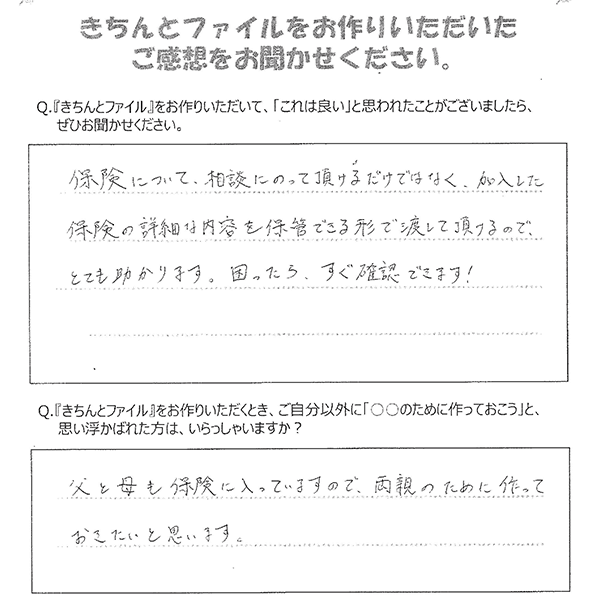 きちんとファイルをお作りいただいた
ご感想をお聞かせください。
Q.『きちんとファイル』をお作りいただいて、「これは良い」と思われたことがございましたら、
ぜひお聞かせください。
保険について、相談にのって頂けるだけではなく、加入した
保険の詳細な内容を保管できる形で渡して頂けるので、
とても助かります。困ったら、すぐ確認できます!
Q.『きちんとファイル』をお作りいただくとき、ご自分以外に「○○のために作っておこう」と、
思い浮かばれた方は、いらっしゃいますか?
父と母も保険に入っていますので、両親のために作って
おきたいと思います。